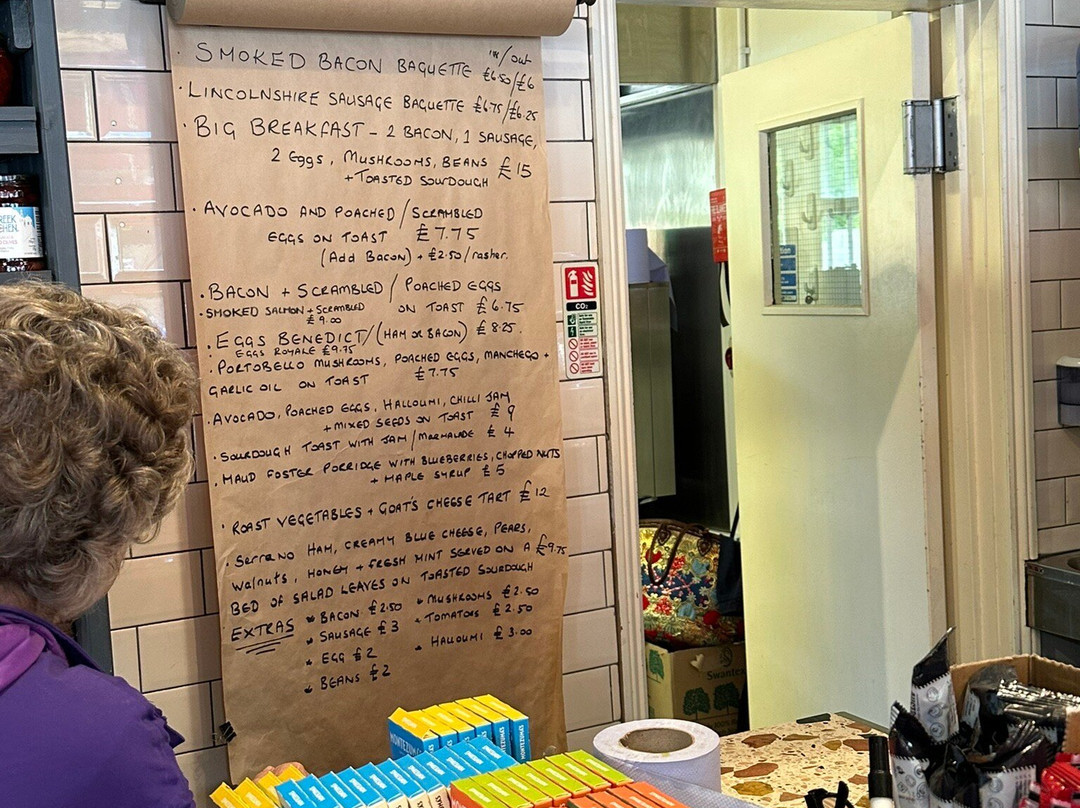 · SMOKED BACON BAGUETTE in/out £6.50/£6
· LINCOLNSHIRE SAUSAGE BAGUETTE £6.75/£6.25
· BIG BREAKFAST – 2 BACON, 1 SAUSAGE,
2 Eggs, MUSHROOMS, BEANS £15
+ TOASTED SOURDOUGH
· AVOCADO AND POACHED / SCRAMBLED
EGGS ON TOAST £7.75
(Add Bacon) + £2.50/rasher.
· BACON + SCRAMBLED / POACHED EGGS
ON TOAST £6.75
· SMOKED SALMON + SCRAMBLED
£9.00
· EGGS BENEDICT / (HAM OR BACON) £8.25.
· EGGS ROYALE £9.75
· PORTOBELLO MUSHROOMS, POACHED EGGS, MANCHEGO +
GARLIC OIL ON TOAST £7.75
· AVOCADO, POACHED EGGS, HALLOUMI, CHILLI JAM
+ MIXED SEEDS ON TOAST £9
· SOURDOUGH TOAST WITH JAM / MARMALADE £4
· MAUD FOSTER PORRIDGE WITH BLUEBERRIES, CHOPPED NUTS
+ MAPLE SYRUP £5
· ROAST VEGETABLES + GOAT'S CHEESE TART £12
· SERRANO HAM, CREAMY BLUE CHEESE, PEARS,
WALNUTS, HONEY + FRESH MINT SERVED ON A £9.75
BED OF SALAD LEAVES ON TOASTED SOURDOUGH
EXTRAS
* BACON £2.50
* SAUSAGE £3
* EGG £2
* BEANS £2
* MUSHROOMS £2.50
* TOMATOES £2.50
* HALLOUMI £3.00
CO2
Swantex
MONTEZUMA'S